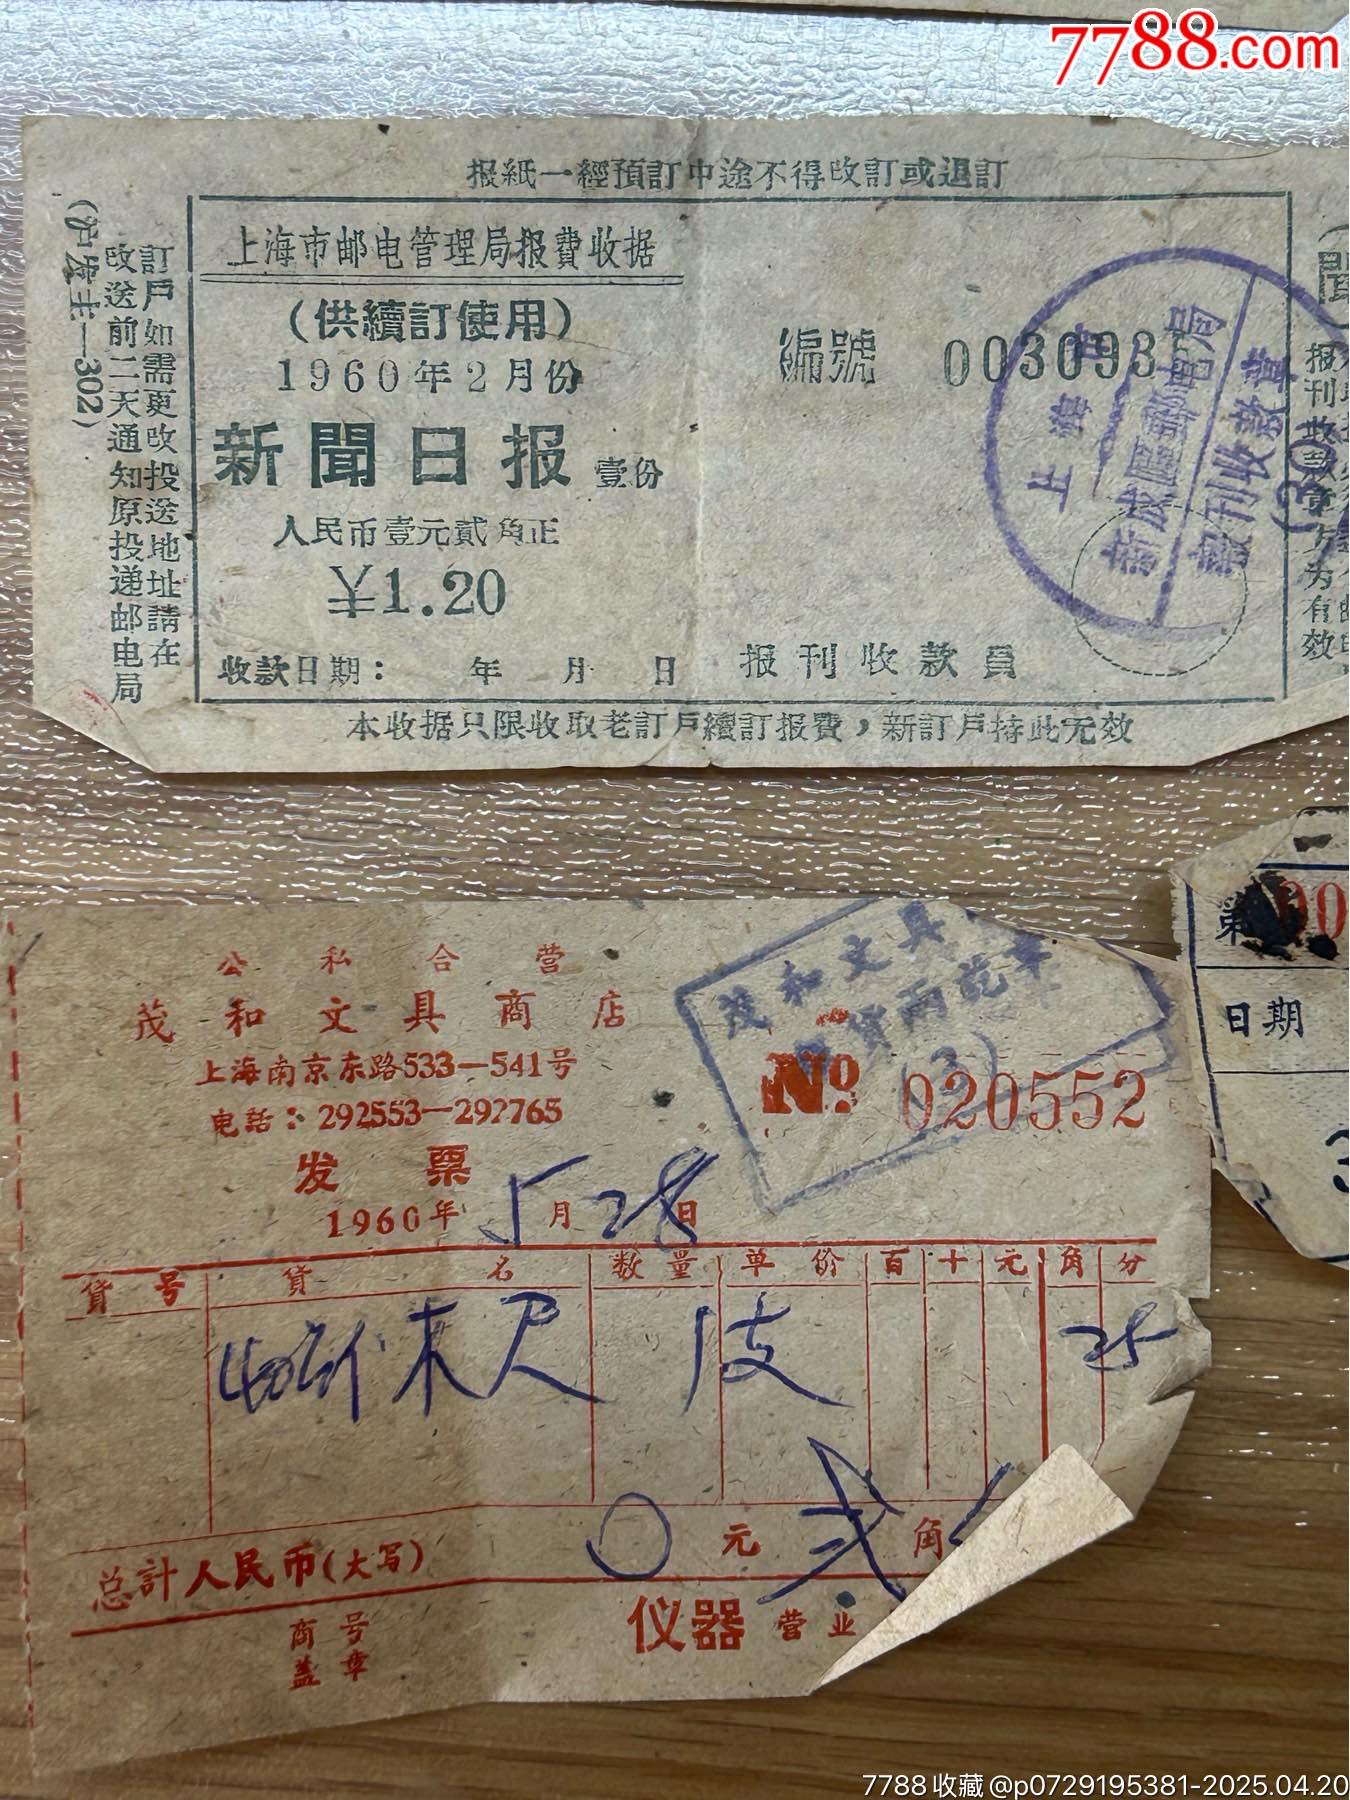 7788.com
报紙一經預訂中途不得改訂或退訂
上海市邮电管理局报費收据
(供續訂使用)
1960年2月份
新聞日报 壹份
人民币壹元貳角正
¥1.20
收款日期： 年 月 日
編號 003093
报刊收款員
上海市
新成區郵電局
報刊收款章
(30
本收据只限收取老訂戶續訂报費，新訂戶持此无效
訂戶如需更改投送地址請在
改送前二天通知原投递邮电局
(沪发主—302)
聞
报刊收款章方为有效
公私合营
茂和文具商店
上海南京东路533—541号
电話：292553—292765
发票
1960年5月28日
茂和文具
貨兩訖章
(3)
№ 020552
貨号 貨名 数量 单价 百 十 元 角 分
木尺 1支 25
总計人民币(大写) 0元 貳角
商号
盖章
仪器 营业
第 00
日期
3
7788收藏@p0729195381-2025.04.20